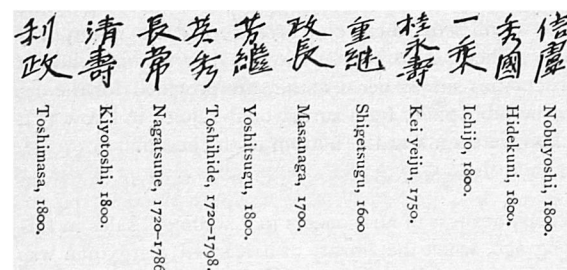 信盧 Nobuyoshi, 1800.
秀國 Hidekuni, 1800.
一乘 Ichijo, 1800.
桂永壽 Kei yeiju, 1750.
重継 Shigetsugu, 1600
政長 Masanaga, 1700.
芳繼 Yoshitsugu, 1800.
英秀 Toshihide, 1720–1798.
長常 Nagatsune, 1720–1786
清壽 Kiyotoshi, 1800.
利政 Toshimasa, 1800.